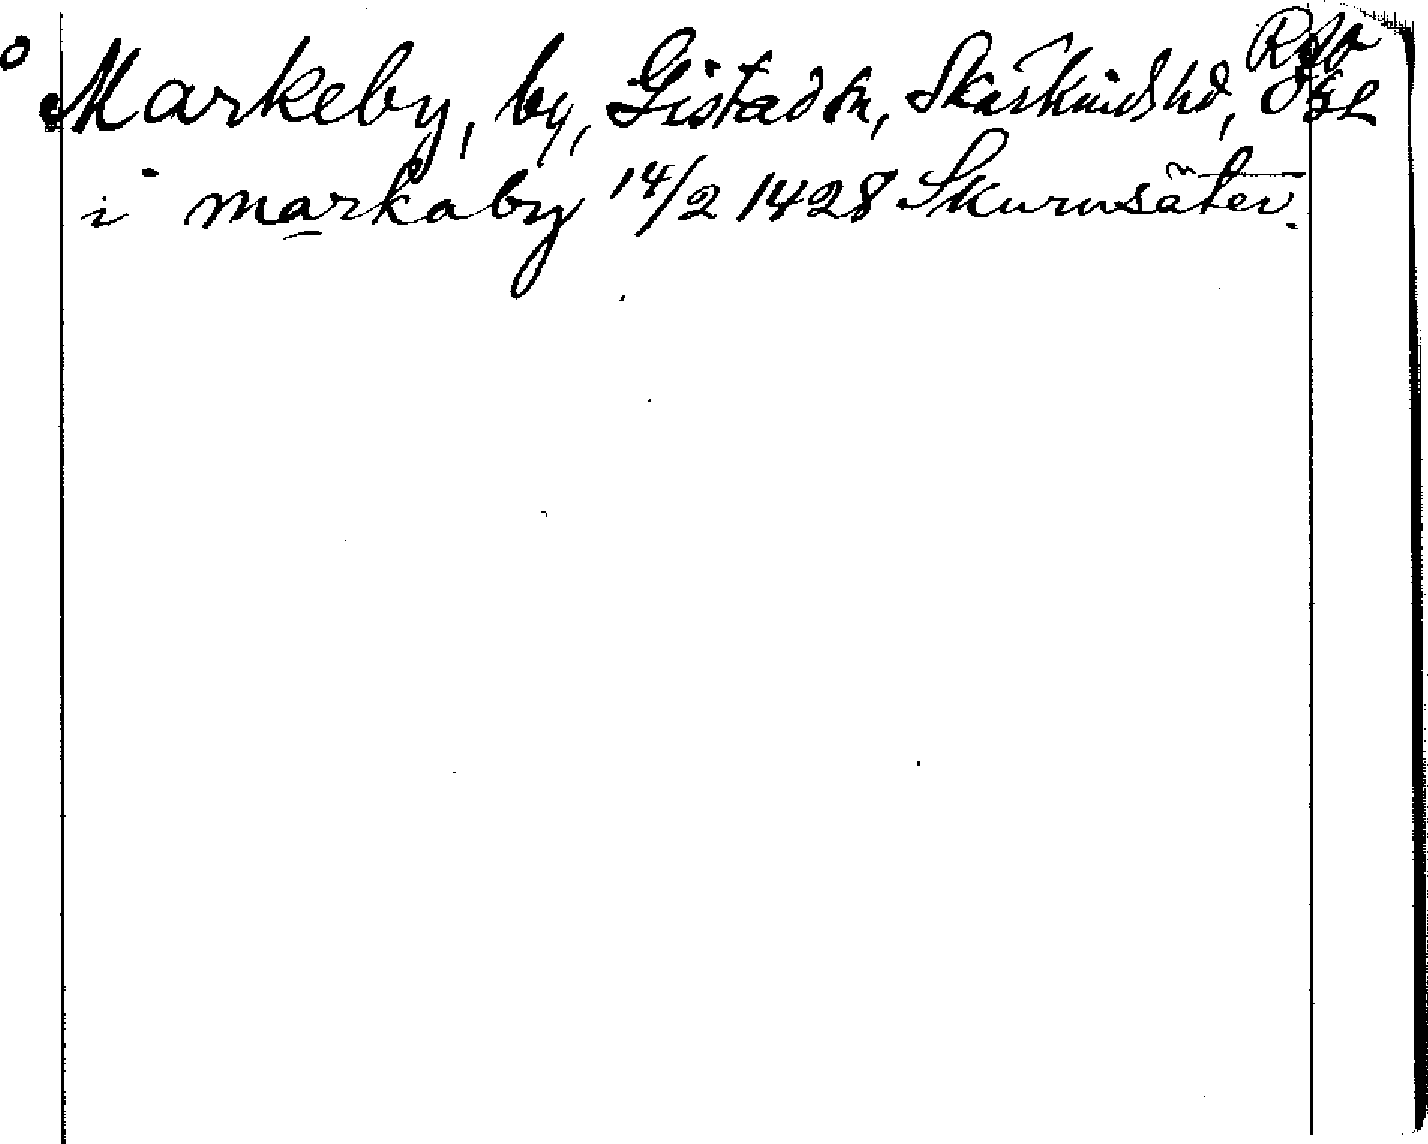 Markeby, by, Gistad sn, Skärkinds hd, Ögl
i markaby 14/2 1428 Skurusäter.